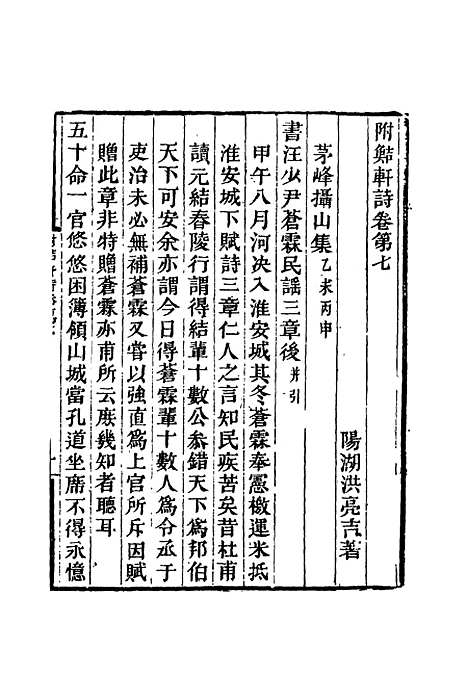 附鮚軒詩卷第七
陽湖洪亮吉著
茅峰攝山集乙未丙申
書汪少尹蒼霖民謡三章後并引
甲午八月河決入淮安城其冬蒼霖奉憲檄運米抵
淮安城下賦詩三章仁人之言知民疾苦矣昔杜甫
讀元結舂陵行謂得結輩十數公叅錯天下爲邦伯
天下可安余亦謂今日得蒼霖輩十數人爲令丞于
吏治未必無補蒼霖又嘗以強直爲上官所斥因賦
贈此章非特贈蒼霖亦甫所云庻幾知者聽耳
五十命一官悠悠困簿領山城當孔道坐席不得永憶